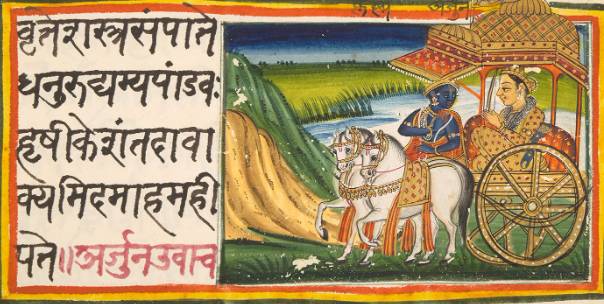 वृतेशस्त्रसंपाते
धनुरुद्यम्यपांडवः
हृषीकेशंतदावा
क्यमिदमाहमही
पते॥अर्जुनउवाच